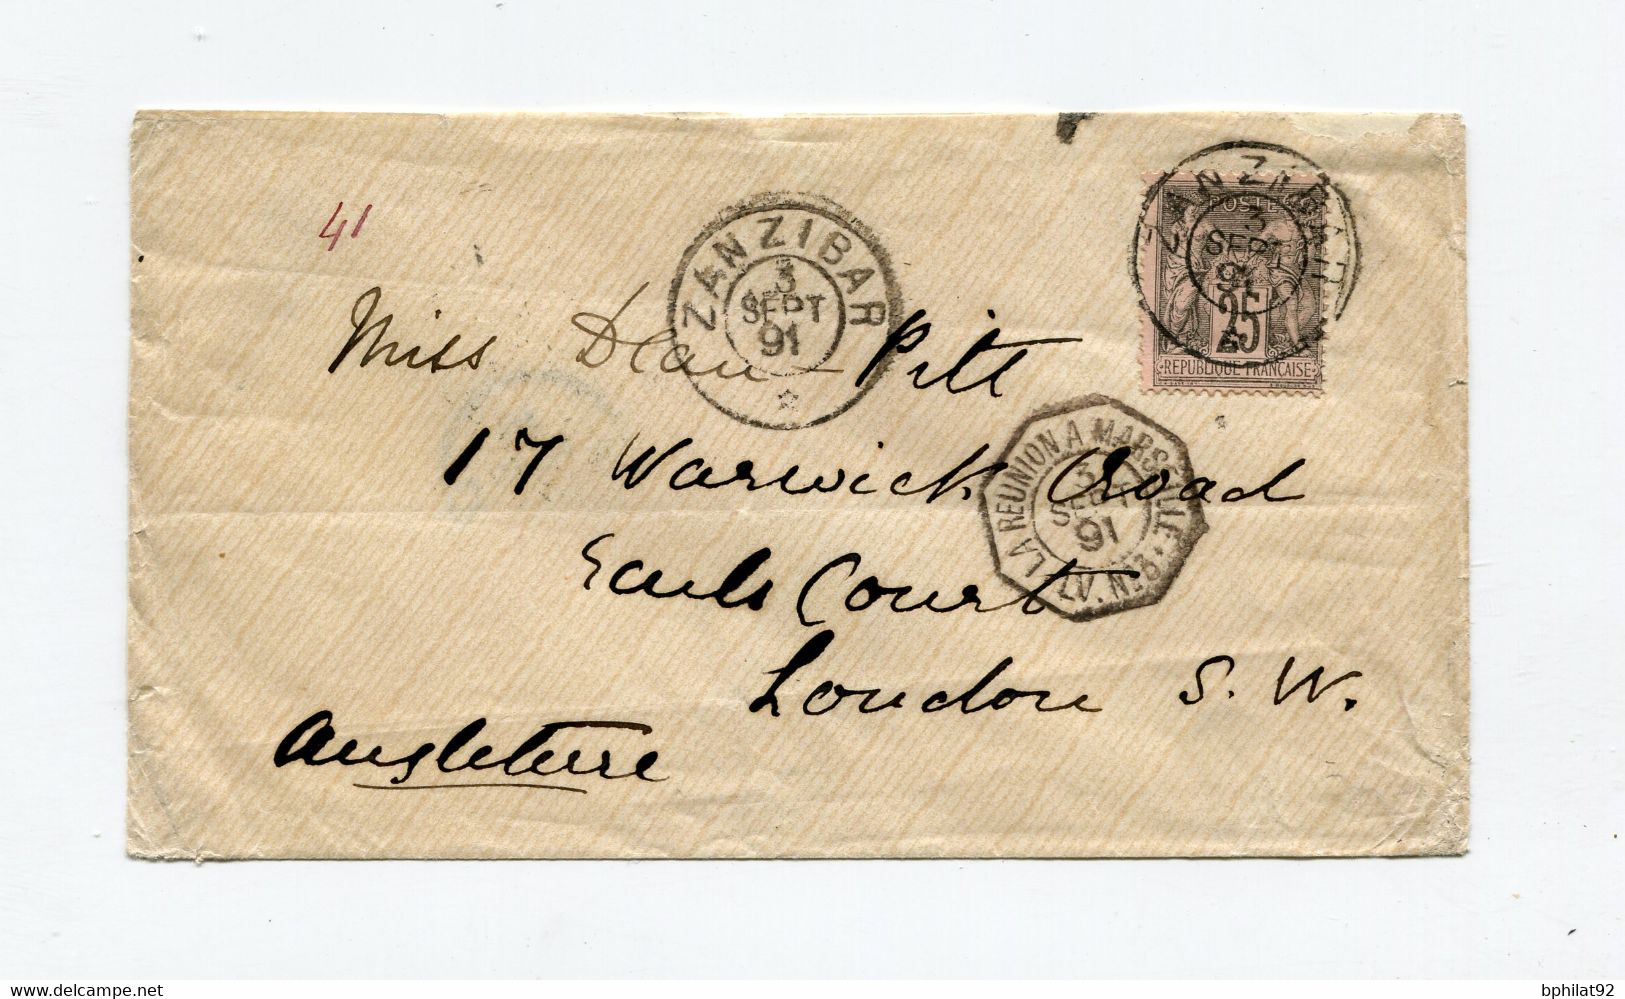 41
ZANZIBAR
3
SEPT
91
ZANZIBAR
3
SEPT
91
POSTE
25
REPUBLIQUE FRANÇAISE
Miss Dean-Pitt
17 Warwick Road
Earls Court
London S. W.
Angleterre
LA REUNION A MARSEILLE
3
SEPT
91
LV. Nº3
delcampe.net
bphilat92